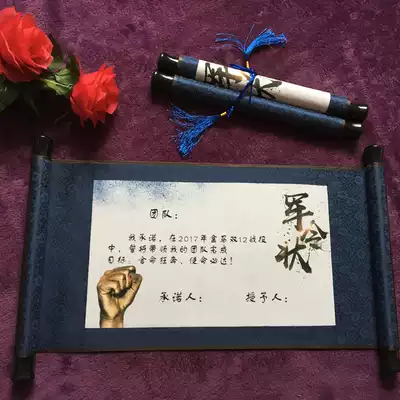 军令状
团队：
我承诺，在2017年盒茶双12战役
中，誓将带领我的团队完成
目标，舍命狂奔、使命必达！
承诺人：
授予人：